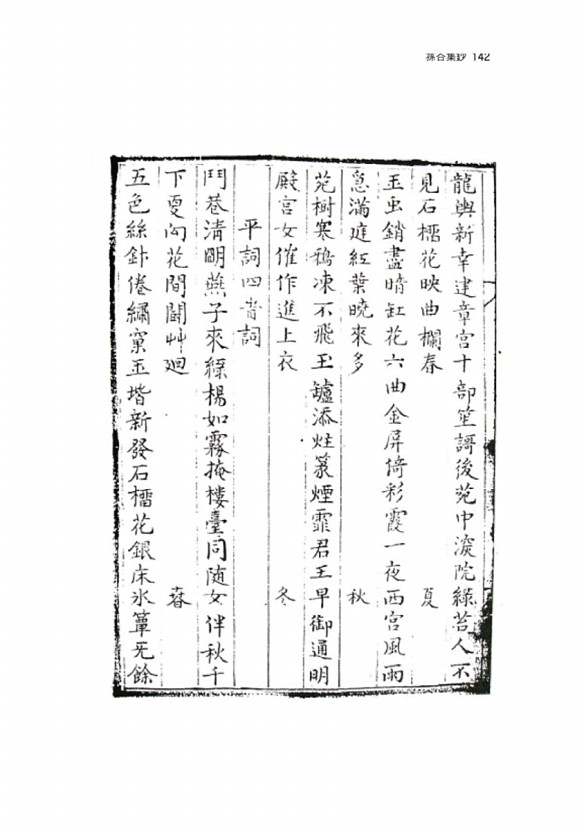 孫谷集鈔 142
龍輿新幸建章宮十部笙謌後苑中深院綠苔人不
見石橊花映曲欄春 夏
玉虫銷盡暗缸花六曲金屏倚彩霞一夜西宮風雨
急滿庭紅葉曉來多 秋
苑樹寒鴉凍不飛玉鑪添炷篆煙霏君王早御通明
殿宮女催作進上衣 冬
平詞四旹詞
門巷清明燕子來綠楊如霧掩樓臺同随女伴秋千
下更向花間鬪艸廻 春
五色絲針倦繡窠玉堦新發石橊花銀床氷簟无餘